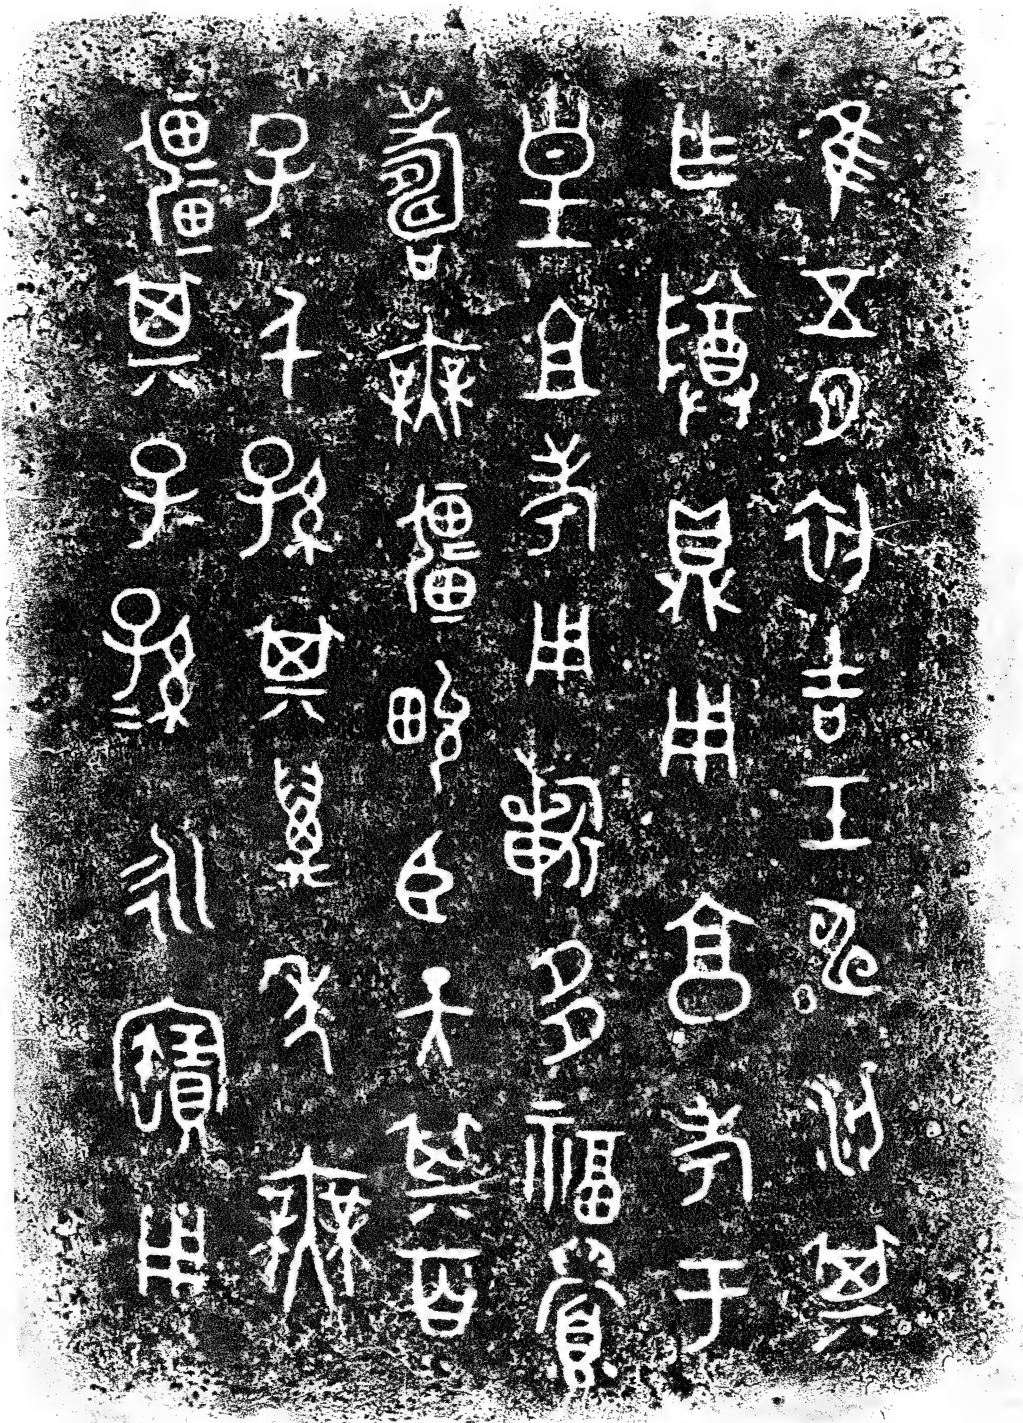 隹五月初吉壬申梁其
乍尊鼎用亯考于
皇且考用𣄨多福眉
壽無疆畯臣天其百
子千孫其萬年無
疆其子孫=永寶用